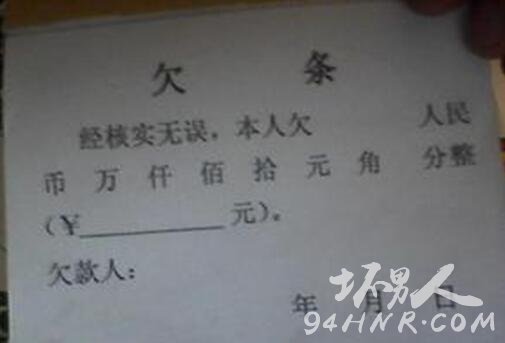 欠 条
经核实无误，本人欠 人民
币 万 仟 佰 拾 元 角 分整
(￥________元)。
欠款人：
年 月 日
坏男人
94HNR.COM